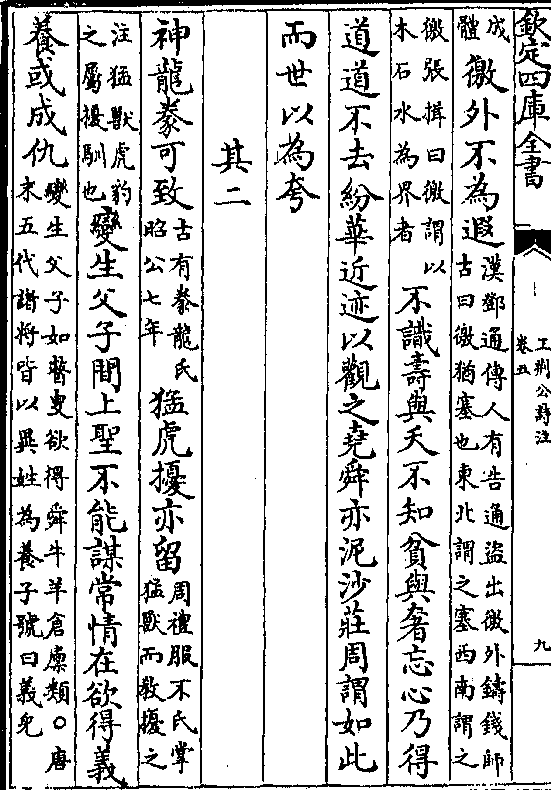 欽定四庫全書
王荆公詩注
卷五
九
成
體
徼外不為遐
漢鄧通傳人有告通盜出徼外鑄錢師
古曰徼猶塞也東北謂之塞西南謂之
徼張揖曰徼謂以
木石水為界者
不識壽與夭不知貧與奢忘心乃得
道道不去紛華近迹以觀之堯舜亦泥沙莊周謂如此
而世以為夸
其二
神龍豢可致
古有豢龍氏
昭公七年
猛虎擾亦留
周禮服不氏掌
猛獸而教擾之
注猛獸虎豹
之屬擾馴也
變生父子間上聖不能謀常情在欲得義
養或成仇
變生父子如瞽叟欲得舜牛羊倉廩類○唐
末五代諸將皆以異姓為養子號曰義兒